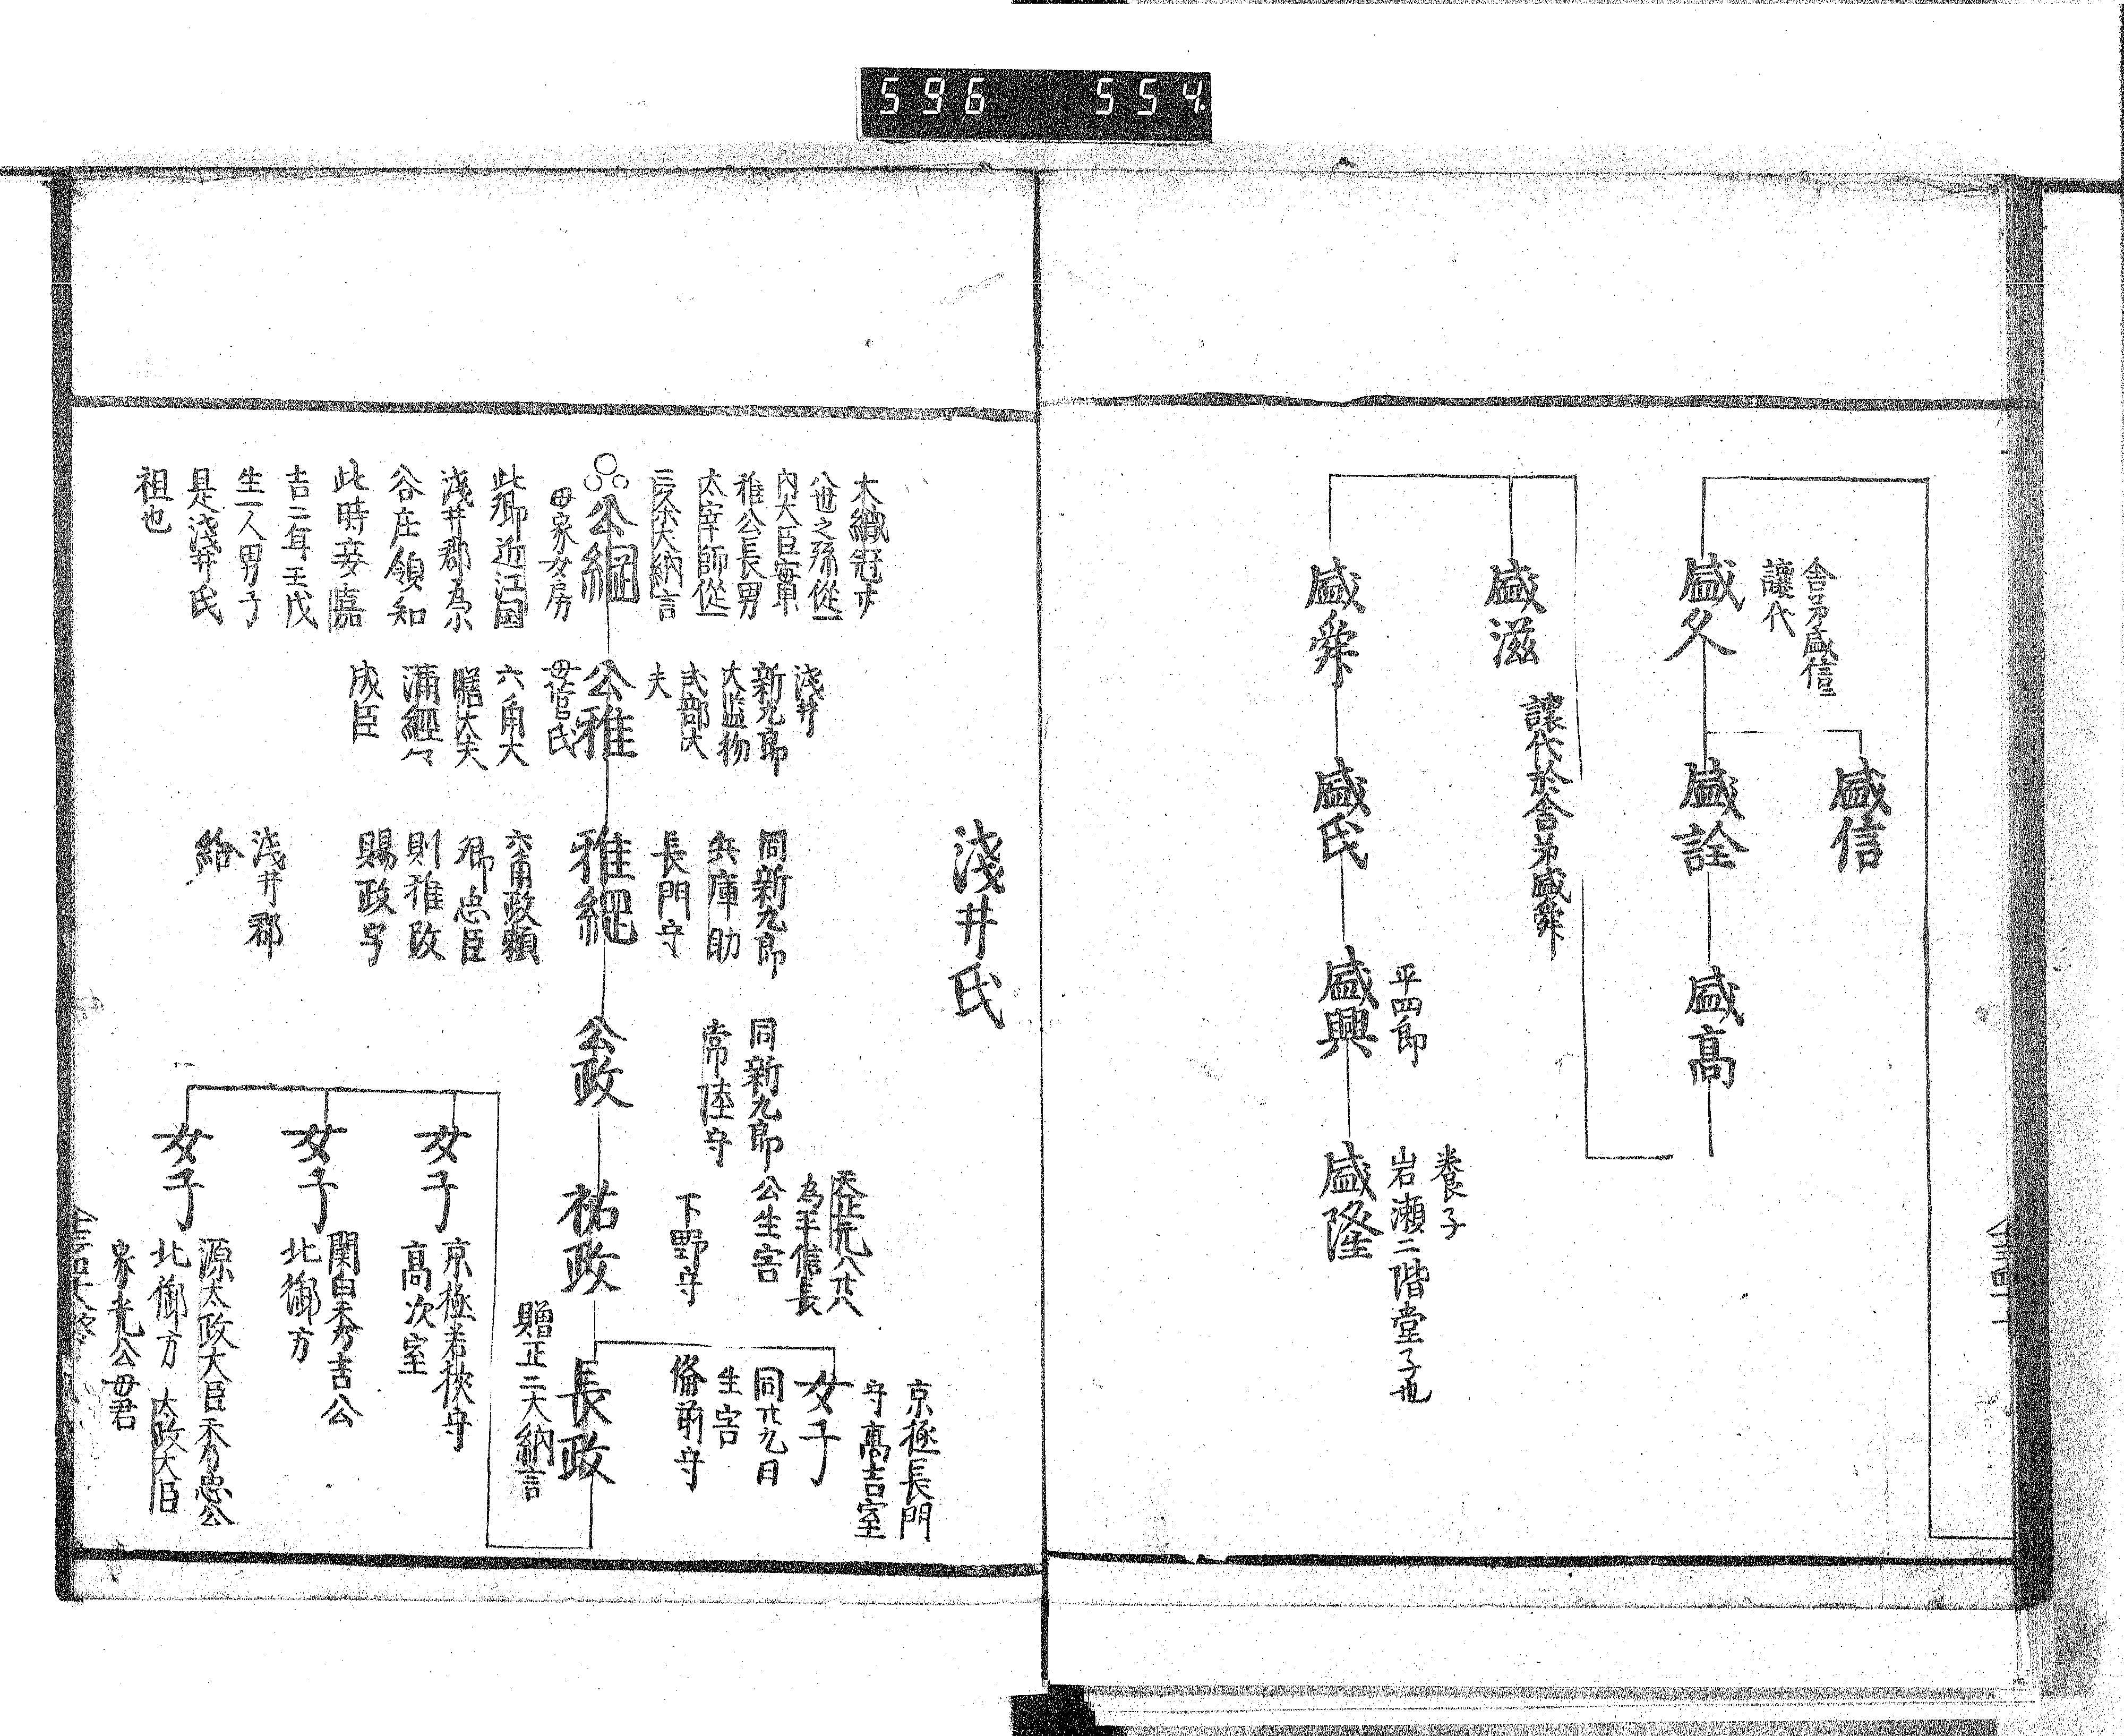 596 554
盛信
舎弟盛信
讓代
盛久
盛詮
盛高
讓代於舎弟盛舜
盛滋
盛舜
盛氏
平四郎
盛興
養子
岩瀬二階堂子也
盛隆
淺井氏
大織冠十
八世之孫從一
内大臣實
雅公長男
太宰師從一
三条大納言
公綱
母家女房
此卿近江国
淺井郡
谷庄領知
此時妾嘉
吉二年壬戌
生一人男子
是淺井氏
祖也
淺井
新九郎
大監物
式部大
夫
公雅
母菅氏
六角大
膳大夫
滿經々
成臣
同新九郎
兵庫助
長門守
雅縄
六角政頼
卿忠臣
則雅政
賜政字
淺井郡
給
同新九郎
常陸守
公政
天正元八廿八
為平信長
公生害
下野守
祐政
京極長門
守高吉室
女子
同廿九日
生害
備前守
長政
贈正二大納言
京極若狭守
高次室
女子
関白秀吉公
北御方
女子
源太政大臣秀忠公
北御方 太政大臣
家光公母君
女子